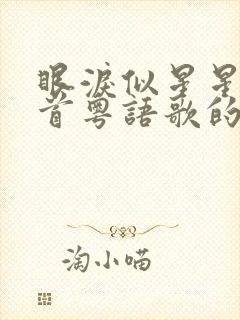 眼淚似星星
首粵語歌的
淘小喵